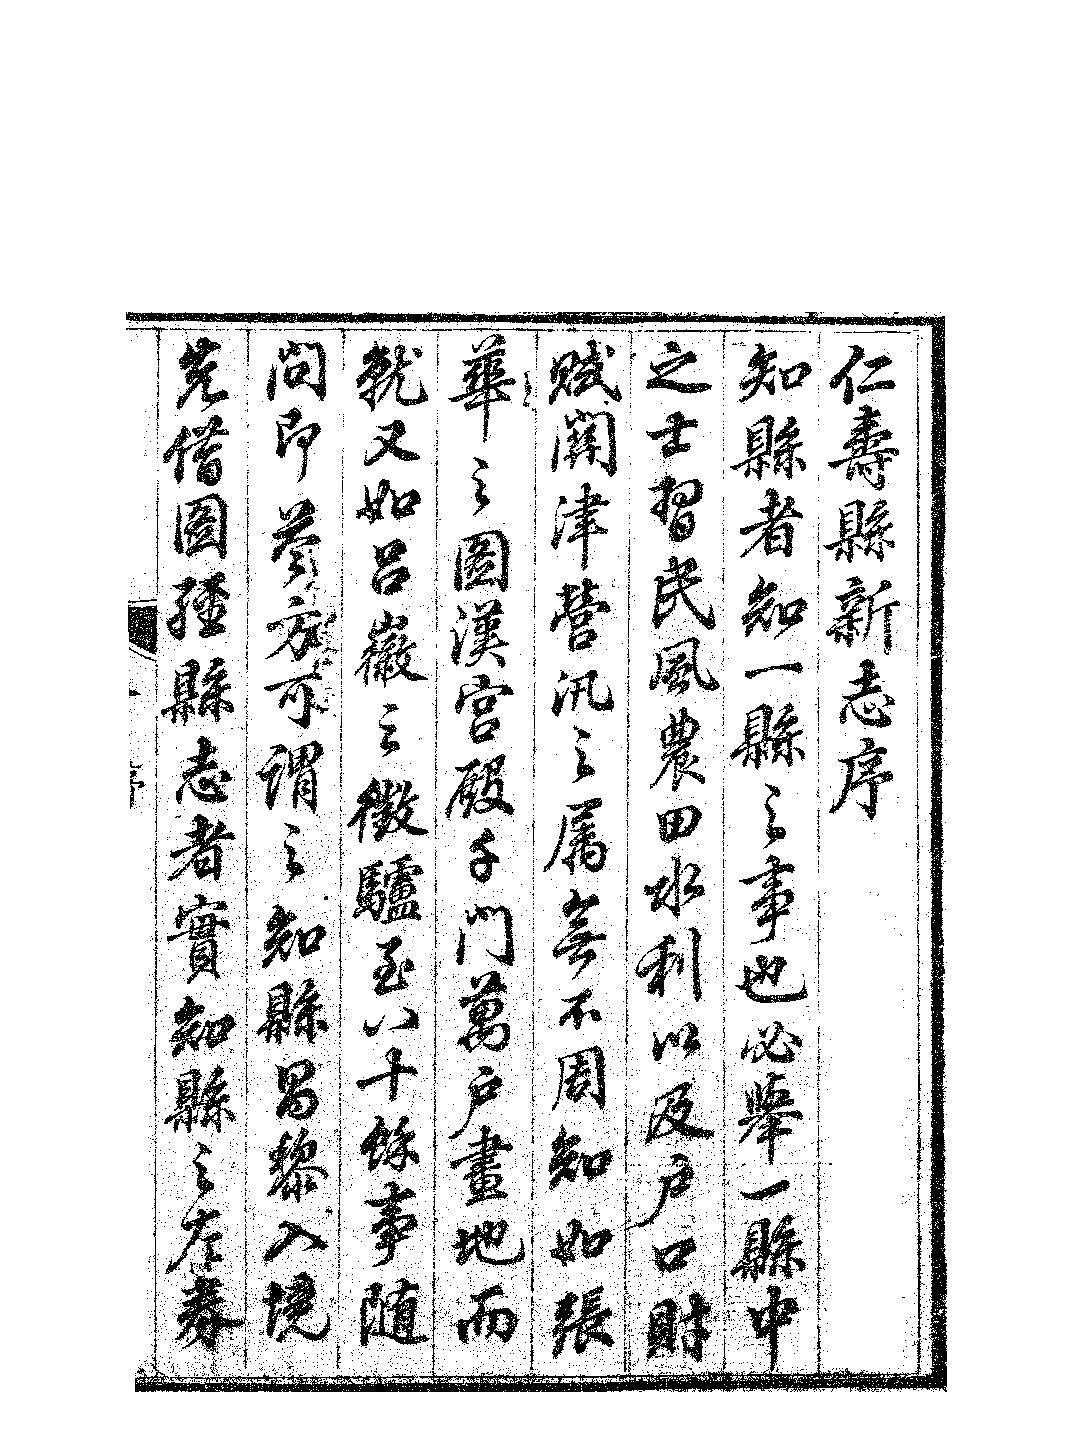 仁壽縣新志序
知縣者知一縣之事也必舉一縣中
之士習民風農田水利以及户口財
賦關津營汛之属無不周知如張
華之圖漢宫殿千門萬户畫地而
就又如吕巖之徵驢至八十餘事随
問即荅方可謂之知縣昌黎入境
先借圖經縣志者實知縣之左券
序